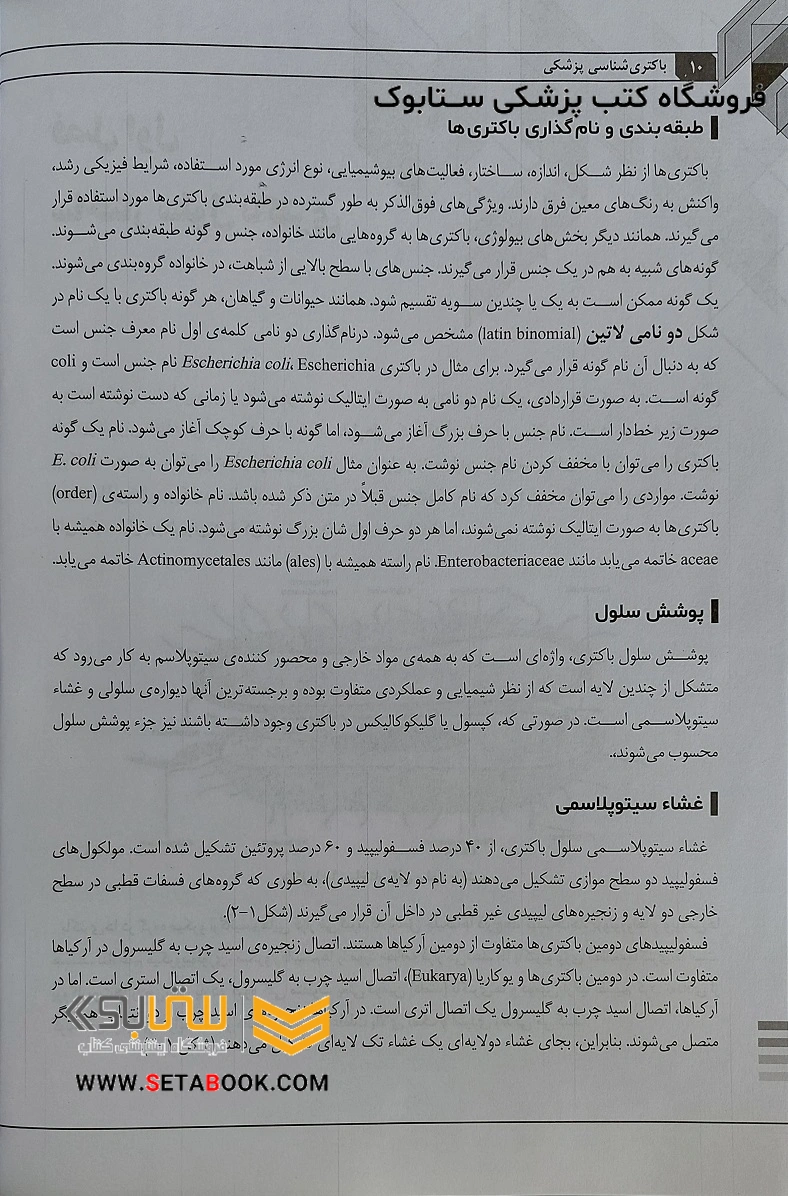 ۱۰ باکتری‌شناسی پزشکی
فروشگاه کتب پزشکی ستابوک
طبقه‌بندی و نام‌گذاری باکتری‌ها
باکتری‌ها از نظر شکل، اندازه، ساختار، فعالیت‌های بیوشیمیایی، نوع انرژی مورد استفاده، شرایط فیزیکی رشد،
واکنش به رنگ‌های معین فرق دارند. ویژگی‌های فوق‌الذکر به طور گسترده در طبقه‌بندی باکتری‌ها مورد استفاده قرار
می‌گیرند. همانند دیگر بخش‌های بیولوژی، باکتری‌ها به گروه‌هایی مانند خانواده، جنس و گونه طبقه‌بندی می‌شوند.
گونه‌های شبیه به هم در یک جنس قرار می‌گیرند. جنس‌های با سطح بالایی از شباهت، در خانواده گروه‌بندی می‌شوند.
یک گونه ممکن است به یک یا چندین سویه تقسیم شود. همانند حیوانات و گیاهان، هر گونه باکتری با یک نام در
شکل دو نامی لاتین (latin binomial) مشخص می‌شود. درنام‌گذاری دو نامی کلمه‌ی اول نام معرف جنس است
که به دنبال آن نام گونه قرار می‌گیرد. برای مثال در باکتری Escherichia coli، Escherichia نام جنس است و coli
گونه است. به صورت قراردادی، یک نام دو نامی به صورت ایتالیک نوشته می‌شود یا زمانی که دست نوشته است به
صورت زیر خط‌دار است. نام جنس با حرف بزرگ آغاز می‌شود، اما گونه با حرف کوچک آغاز می‌شود. نام یک گونه
باکتری را می‌توان با مخفف کردن نام جنس نوشت. به عنوان مثال Escherichia coli را می‌توان به صورت E. coli
نوشت. مواردی را می‌توان مخفف کرد که نام کامل جنس قبلاً در متن ذکر شده باشد. نام خانواده و راسته‌ی (order)
باکتری‌ها به صورت ایتالیک نوشته نمی‌شوند، اما هر دو حرف اول شان بزرگ نوشته می‌شود. نام یک خانواده همیشه با
aceae خاتمه می‌یابد مانند Enterobacteriaceae. نام راسته همیشه با (ales) مانند Actinomycetales خاتمه می‌یابد.
پوشش سلول
پوشش سلول باکتری، واژه‌ای است که به همه‌ی مواد خارجی و محصور کننده‌ی سیتوپلاسم به کار می‌رود که
متشکل از چندین لایه است که از نظر شیمیایی و عملکردی متفاوت بوده و برجسته‌ترین آنها دیواره‌ی سلولی و غشاء
سیتوپلاسمی است. در صورتی که، کپسول یا گلیکوکالیکس در باکتری وجود داشته باشند نیز جزء پوشش سلول
محسوب می‌شوند،.
غشاء سیتوپلاسمی
غشاء سیتوپلاسمی سلول باکتری، از ۴۰ درصد فسفولیپید و ۶۰ درصد پروتئین تشکیل شده است. مولکول‌های
فسفولیپید دو سطح موازی تشکیل می‌دهند (به نام دو لایه‌ی لیپیدی)، به طوری که گروه‌های فسفات قطبی در سطح
خارجی دو لایه و زنجیره‌های لیپیدی غیر قطبی در داخل آن قرار می‌گیرند (شکل۱-۲).
فسفولیپیدهای دومین باکتری‌ها متفاوت از دومین آرکیاها هستند. اتصال زنجیره‌ی اسید چرب به گلیسرول در آرکیاها
متفاوت است. در دومین باکتری‌ها و یوکاریا (Eukarya)، اتصال اسید چرب به گلیسرول، یک اتصال استری است. اما در
آرکیاها، اتصال اسید چرب به گلیسرول یک اتصال اتری است. در آرکیاها اسید چرب
متصل می‌شوند. بنابراین، بجای غشاء دولایه‌ای یک غشاء تک لایه‌ای می‌دهند
ستابوک
فروشگاه اینترنتی کتاب
WWW.SETABOOK.COM